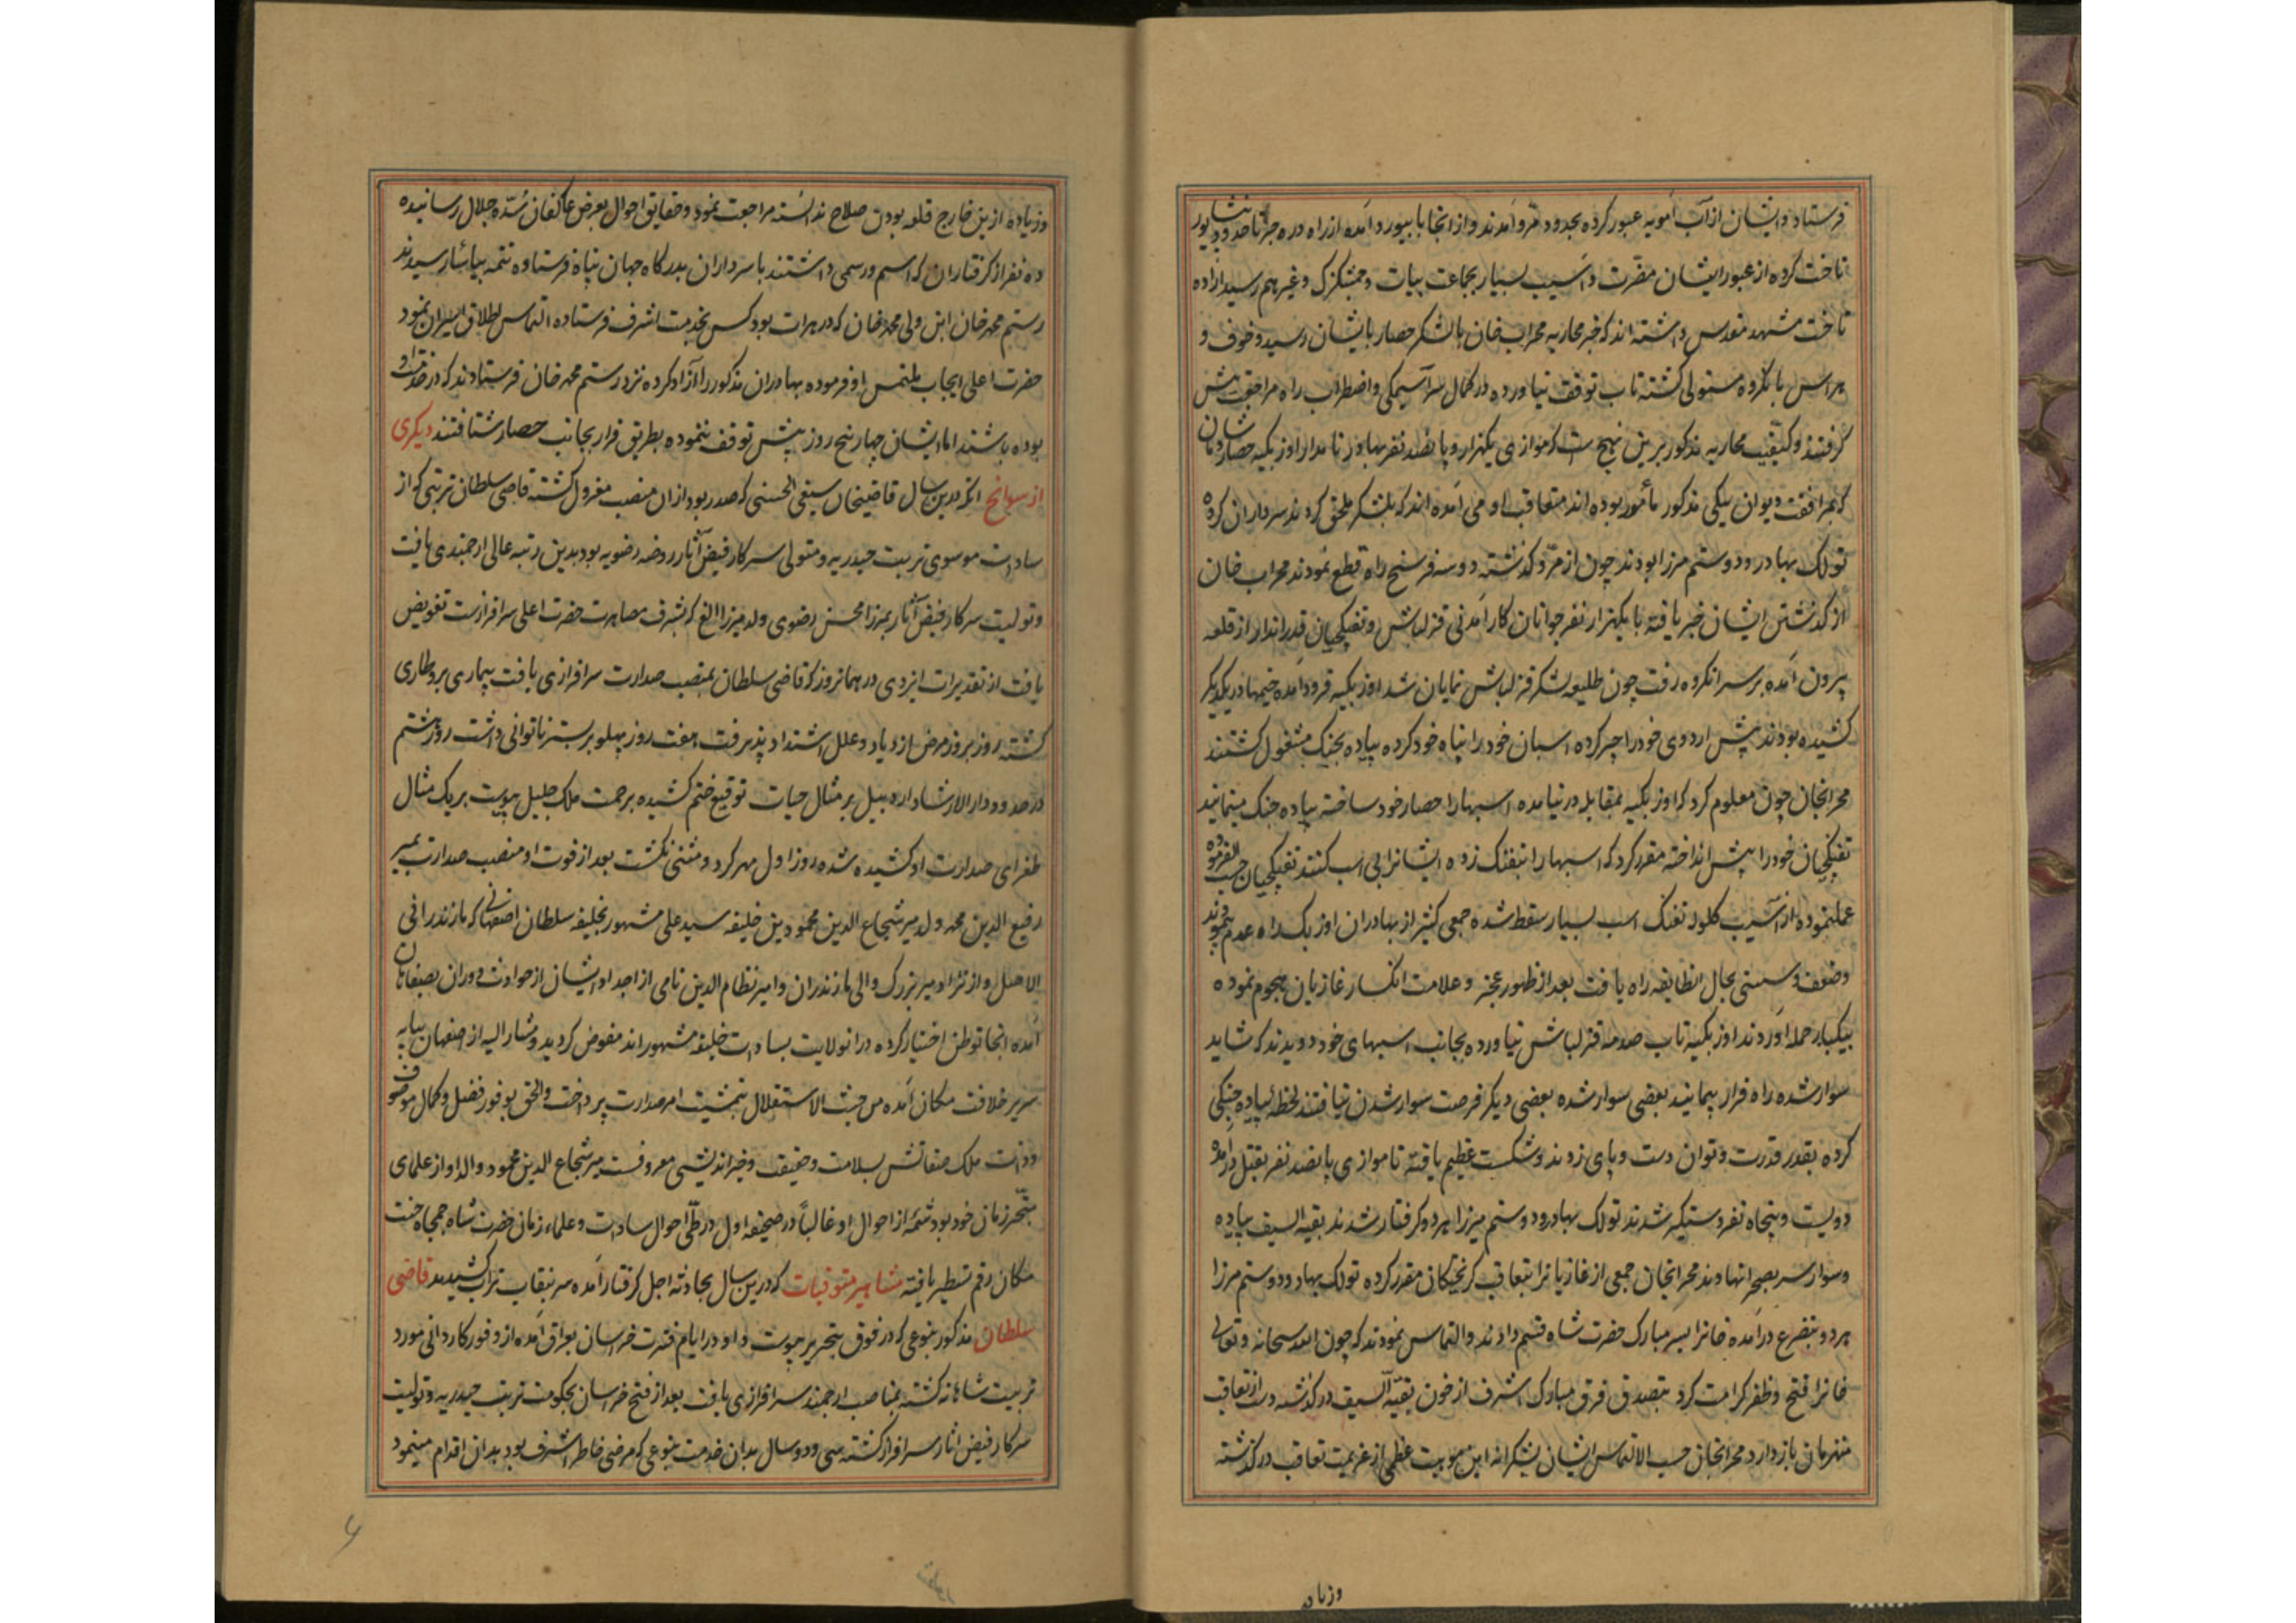 فرستاد و ایشان از آب آمویه عبور کرده بحدود مرو آمدند و از انجا با بیورد آمده از راه دره جز تا حدود نیشابور
تاخت کرده از عبور ایشان مضرت و آسیب بسیار بجماعت بیات و چمشکزک و غیرهم رسید اراده
تاخت مشهد مقدس داشته اند که خبر محاربه محراب خان با لشکر حصار بایشان رسید و خوف و
هراس بانگروه مستولی گشته تاب توقف نیاورده در کمال سراسیمکی و اضطراب راه مراجعت پیش
گرفتند و کیفیت محاربه مذکور برین نهج است که موازی یکهزار و پانصد نفر بهادر نامدار اوزبکیه حصار شادمان
که بمرافقت دیوان بیکی مذکور مأمور بوده اند متعاقب او می آمده اند که بلشکر ملحق کردند سرداران کروه
تولک بهادر و دوستم مرزا بودند چون از مرو گذشته دو سه فرسخ راه قطع نمودند محراب خان
از گذشتن ایشان خبر یافته با یکهزار نفر جوانان کار آمدنی قزلباش و تفنکچیان قدر انداز از قلعه
بیرون آمده بر سر انکروه رفت چون طلیعه لشکر قزلباش نمایان شد اوزبکیه فرود آمده خیمها در یکدیکر
کشیده بودند پیش اردوی خود را چپر کرده اسبان خود را پناه خود کرده پیاده بجنک مشغول گشتند
محرابخان چون معلوم کرد که اوزبکیه بمقابله در نیامده اسبها را حصار خود ساخته پیاده جنک مینمایند
تفنکچیان خود را پیش انداخته مقرر کرد که اسبها را بتفنک زده ایشانرا بی اسب کنند تفنکچیان حسب الفرموده
عمل نموده از آسیب کلوله تفنک اسب بسیار سقط شده جمعی کثیر از بهادران اوزبک راه عدم پیمودند
و ضعف و سستی بحال انطایفه راه یافت بعد از ظهور عجز و علامت انکسار غازیان هجوم نموده
بیکبار حمله آوردند اوزبکیه تاب صدمه قزلباش نیاورده بجانب اسبهای خود دویدند که شاید
سوار شده راه فرار پیمایند بعضی سوار شده بعضی دیکر فرصت سوار شدن نیافتند لحظه پیاده جنکی
کرده بقدر قدرت و توان دست و پای زدند و شکست عظیم یافته تا موازی پانصد نفر بقتل درآمده
دویست و پنجاه نفر دستکیر شدند تولک بهادر و دوستم میرزا هر دو کرفتار شدند بقیه السیف پیاده
و سوار سر بصحرا نهادند محرابخان جمعی از غازیانرا بتعاقب کریختکان مقرر کرده تولک بهادر و دوستم مرزا
هر دو بتضرع درآمده خانرا بسر مبارک حضرت شاه قسم دادند و التماس نمودند که چون الله سبحانه و تعالی
خانرا فتح و ظفر کرامت کرد بتصدق فرق مبارک اشرف از خون بقیه السیف در گذشته دست از تعاقب
منهزمان باز دارد محرابخان حسب الالتماس ایشان بشکرانه این موهبت عظمی از عزیمت تعاقب در گذشته
وزیاده
و زیاده ازین خارج قلعه بودن صلاح ندانسته مراجعت نمود و حقایق احوال بعرض عاکفان سده جلال رسانیده
ده نفر از کرفتاران که اسم و رسمی داشتند با سرداران بدرکاه جهان پناه فرستاده تتمه بیاسا رسیدند
رستم محمد خان ابن ولی محمد خان که در هرات بود کس بخدمت اشرف فرستاده التماس اطلاق اسیران نمود
حضرت اعلی ایجاب ملتمس او فرموده بهادران مذکور را آزاد کرده نزد رستم محمد خان فرستادند که در خدمت او
بوده باشند اما ایشان چهار پنج روز بیش توقف ننموده بطریق فرار بجانب حصار شتافتند دیکری
از سوانح انکه درین سال قاضیخان سیفی الحسنی که صدر بود ازان منصب معزول کشته قاضی سلطان تربتی که از
سادات موسوی تربت حیدریه و متولی سرکار فیض آثار روضه رضویه بود بدین رتبه عالی ارجمندی یافت
و تولیت سرکار فیض آثار بمیرزا محسن رضوی ولد میرزا الغ که بشرف مصاهرت حضرت اعلی سرافرازست تفویض
یافت از تقدیرات ایزدی در همانروز که قاضی سلطان بمنصب صدارت سرافرازی یافت بیماری برو طاری
کشته روز بروز مرض ازدیاد و علل اشتداد پذیرفت هفت روز پهلو بر بستر ناتوانی داشت روز هشتم
در حدود دار الارشاد اردبیل بر مثال حیات توقیع ختم کشیده برحمت ملک جلیل پیوست بر یک مثال
طغرای صدارت او کشیده شده روز اول مهر کرد و مثنی نکشت بعد از فوت او منصب صدارت بمیر
رفیع الدین محمد ولد میر شجاع الدین محمود بن خلیفه سید علی مشهور بخلیفه سلطان اصفهانی که مازندرانی
الاصل و از نژاد میر بزرک والی مازندران و امیر نظام الدین نامی از اجداد ایشان از حوادث دوران بصفاهان
آمده انجا توطن اختیار کرده در انولایت بسادات خلیفه مشهور اند مفوض کردید و مشار الیه از اصفهان بپایه
سریر خلافت مکان آمده من حیث الاستقلال بتمشیت امر صدارت پرداخت والحق بوفور فضل و کمال موصوف
و ذات ملک صفاتش بسلامت و عفیفت و خیر اندیشی معروفست میر شجاع الدین محمود والد او از علمای
متبحر زمان خود بود شمه از احوال او غالباً در صحیفه اول در طی احوال سادات و علماء زمان حضرت شاه جمجاه جنت
مکان رقم تسطیر یافته مشاهیر متوفیات که درین سال بحادثه اجل کرفتار آمده سر بنقاب تراب کشیدند قاضی
سلطان مذکور بنوعی که در فوق بتحریر پیوست و او در ایام فترت خراسان بعراق آمده از وفور کاردانی مورد
تربیت شاهانه کشته بمناصب ارجمند سرافرازی یافت بعد از فتح خراسان بحکومت تربت حیدریه و تولیت
سرکار فیض اثار سرافراز کشته سی و دو سال بدان خدمت بنوعی که مرضی خاطر اشرف بود بدان اقدام مینمود